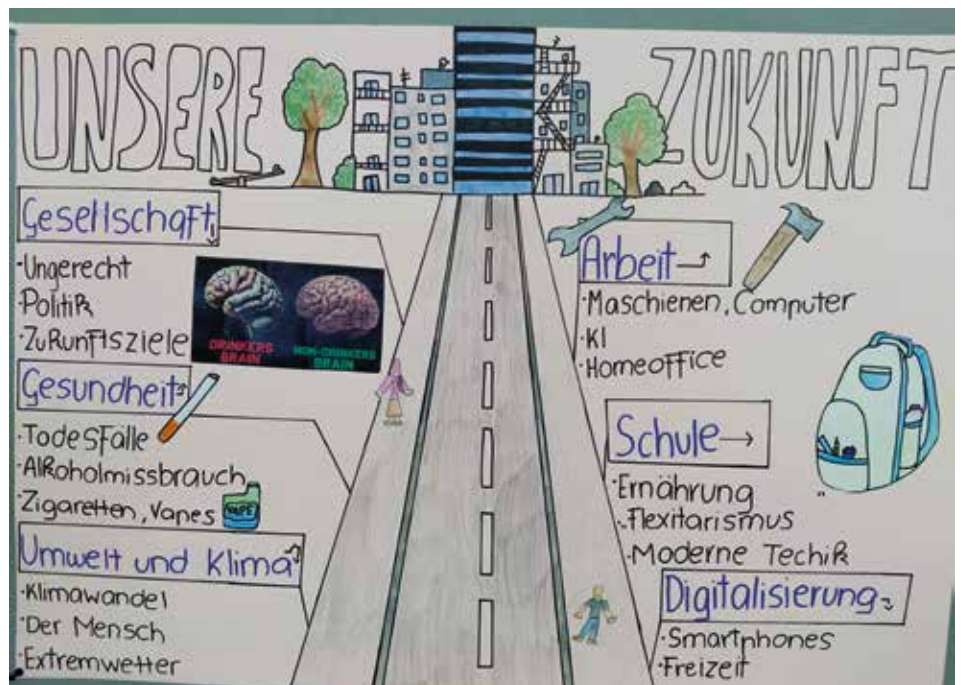 UNSERE ZUKUNFT
Gesellschaft
·Ungerecht
·Politik
·Zukunftsziele
DRINKERS
BRAIN
NON-DRINKERS
BRAIN
Gesundheit
·Todesfälle
·Alkoholmissbrauch
·Zigaretten, Vapes
VAPE
Umwelt und Klima
·Klimawandel
·Der Mensch
·Extremwetter
Arbeit
·Maschienen, Computer
·KI
·Homeoffice
Schule
·Ernährung
·Flexitarismus
·Moderne Techik
Digitalisierung
·Smartphones
·Freizeit